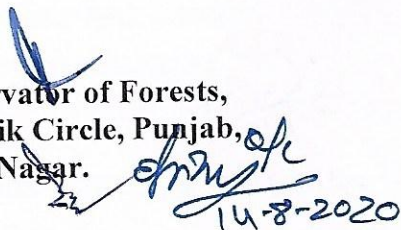 vator of Forests,
ik Circle, Punjab,
Nagar.
14-8-2020